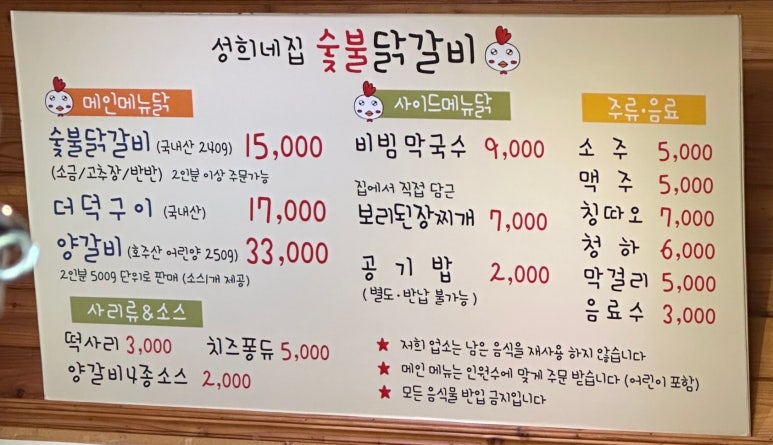 성희네집 숯불닭갈비
메인메뉴닭
숯불닭갈비 (국내산 240g) 15,000
(소금/고추장/반반) 2인분 이상 주문가능
더덕구이 (국내산) 17,000
양갈비 (호주산 어린양 250g) 33,000
2인분 500g 단위로 판매 (소스1개 제공)
사리류&소스
떡사리 3,000 치즈퐁듀 5,000
양갈비4종소스 2,000
사이드메뉴닭
비빔막국수 9,000
집에서 직접 담근
보리된장찌개 7,000
공기밥 2,000
(별도·반납 불가능)
주류·음료
소주 5,000
맥주 5,000
칭따오 7,000
청하 6,000
막걸리 5,000
음료수 3,000
★ 저희 업소는 남은 음식을 재사용 하지 않습니다
★ 메인 메뉴는 인원수에 맞게 주문 받습니다 (어린이 포함)
★ 모든 음식물 반입 금지입니다